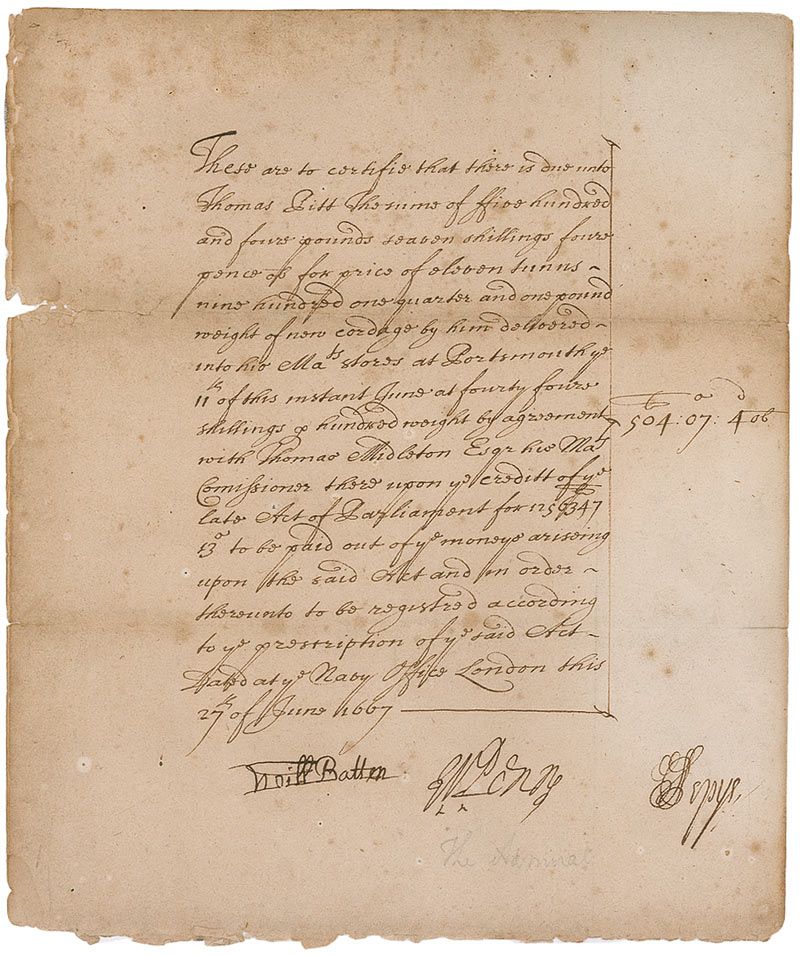 These are to certifie that there is due unto
Thomas Pitt The sume of ffive hundred
and foure pounds seaven shillings foure
pence ob for price of eleven tunns ~
nine hundred one quarter and one pound
weight of new cordage by him delivered ~
into his Maᵗˢ stores at Portsmouth yᵉ
11ᵗʰ of this instant June at fourty foure
shillings ꝑ hundred weight by agreement
with Thomas Midleton Esqr his Maᵗˢ
Comissioner there upon yᵉ creditt of yᵉ
late Act of Parliament for 1256347
13ˢ to be paid out of yᵉ moneys ariseing
upon the said Act and in order ~
thereunto to be registred according
to yᵉ prescription of yᵉ said Act ~
Dated at yᵉ Navy Office London this
27ᵗʰ of June 1667
504 : 07 : 4 ob
Will Batten
W Penn
S Pepys.
The Admiral